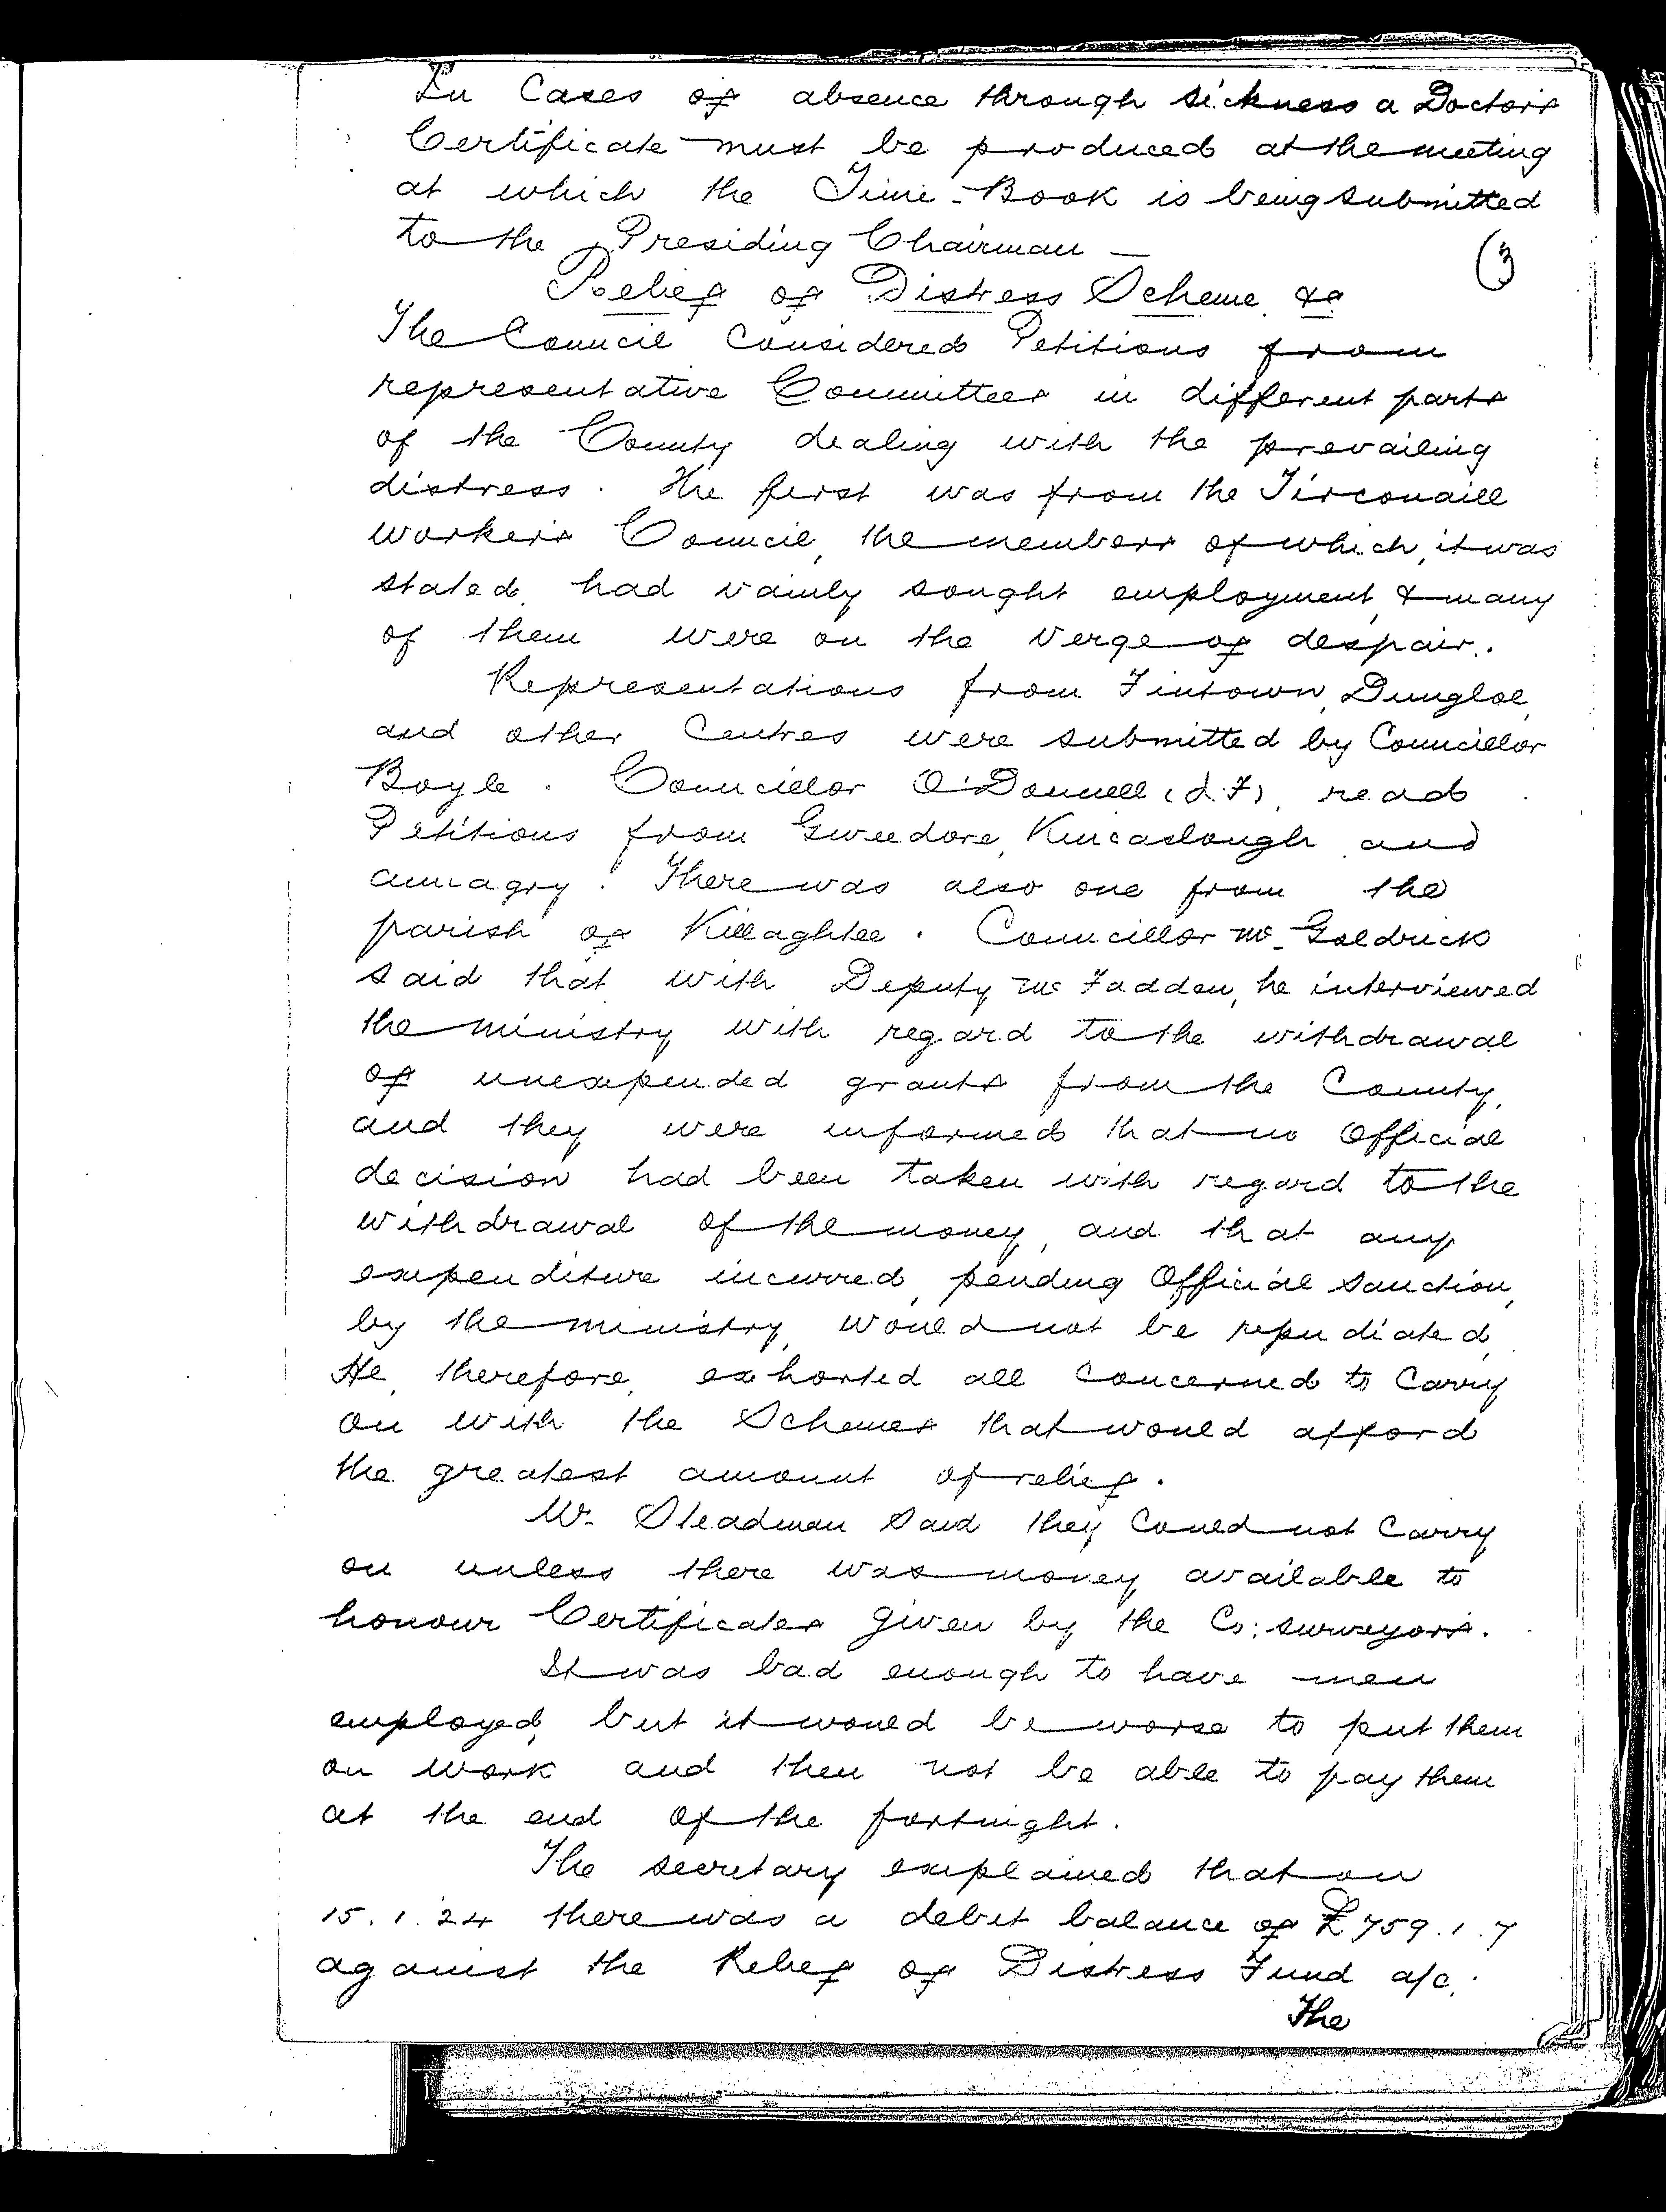 In Cases of absence through sickness a Doctor's
Certificate must be produced at the meeting
at which the Time-Book is being submitted
to the Presiding Chairman —
(3
Relief of Distress Scheme &c
The Council Considered Petitions from
representative Committees in different parts
of the County dealing with the prevailing
distress. The first was from the Tirconaill
Workers Council, the members of which, it was
stated, had vainly sought employment, & many
of them were on the verge of despair.
Representations from Fintown, Dungloe,
and other Centres were submitted by Councillor
Boyle. Councillor O'Donnell (J.F), read
Petitions from Gweedore, Kincaslough and
annagry. There was also one from the
parish of Killaghtee. Councillor Mc Goldrick
said that with Deputy Mc Fadden, he interviewed
the ministry with regard to the withdrawal
of unexpended grants from the County,
and they were informed that no Official
decision had been taken with regard to the
withdrawal of the money, and that any
expenditure incurred, pending Official Sanction,
by the ministry, would not be repudiated,
He, therefore, exhorted all concerned to Carry
on with the Schemes that would afford
the greatest amount of relief.
Mr. Steadman said they Could not Carry
on unless there was money available to
honour Certificates given by the Co: surveyors.
It was bad enough to have men
employed, but it would be worse to put them
on work and then not be able to pay them
at the end of the fortnight.
The secretary explained that on
15.1.24 there was a debit balance of £759.1.7
against the Relief of Distress Fund a/c.
The